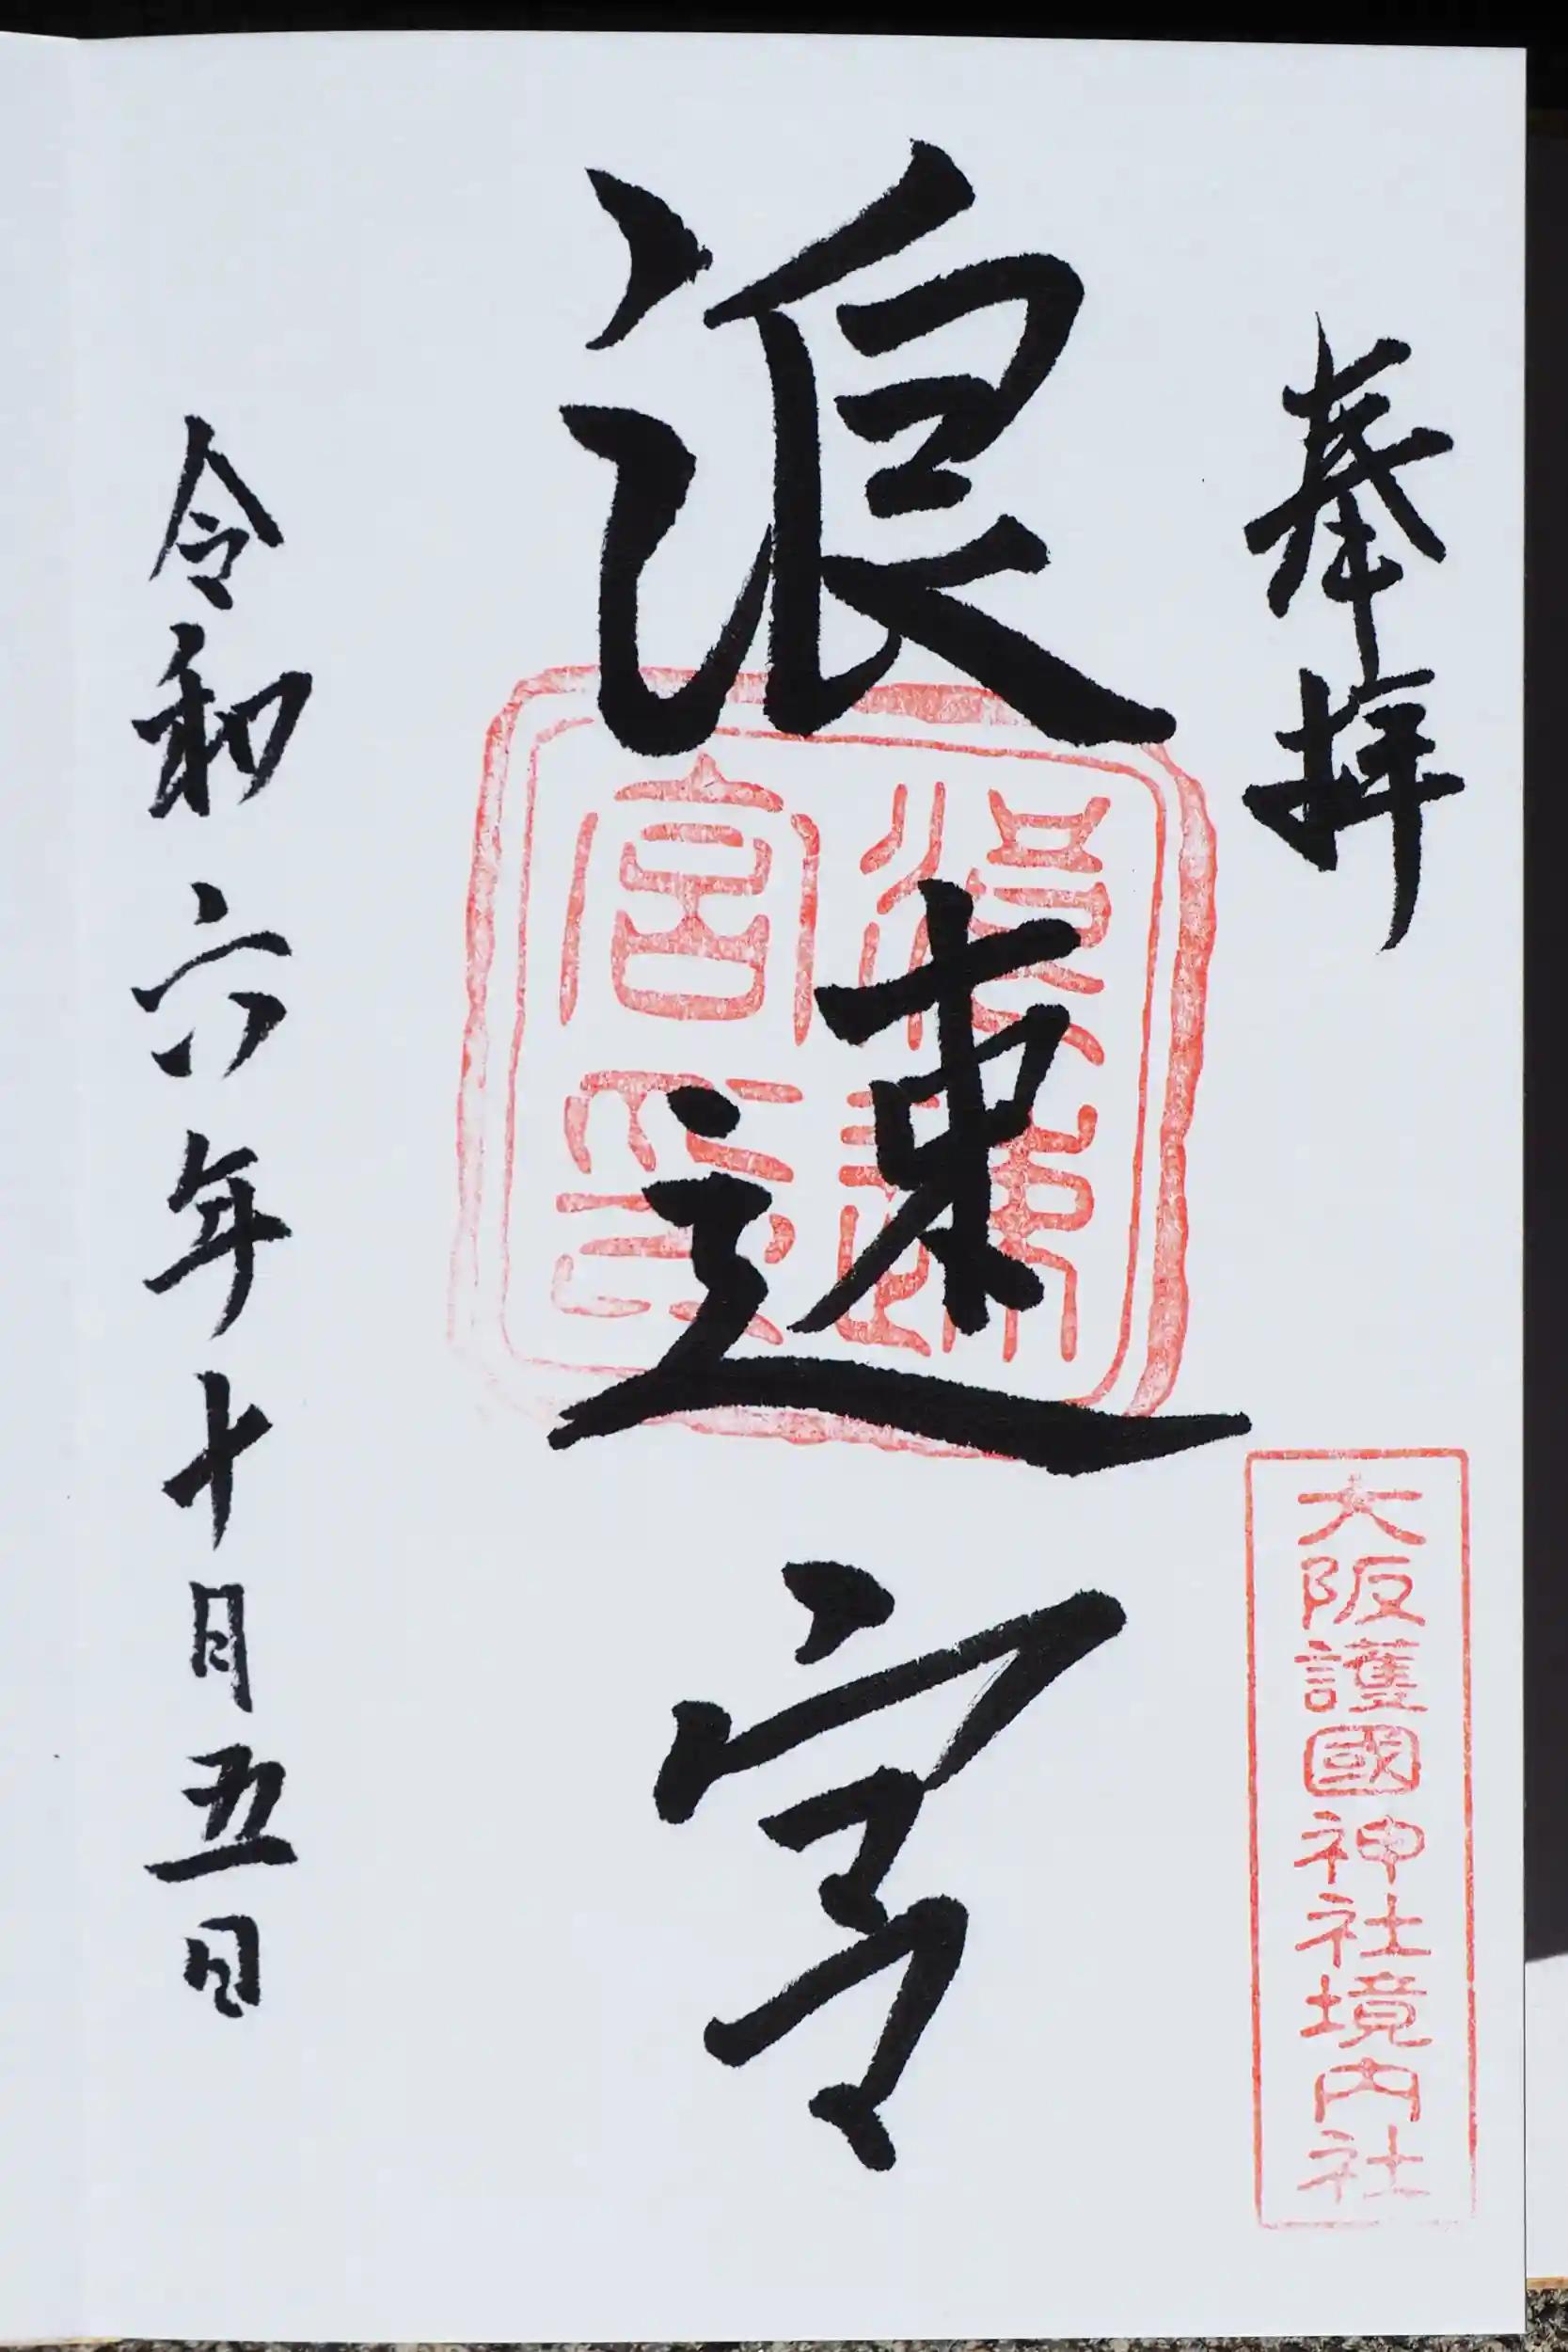 奉拝
大阪護國神社境内社
浪速宮
浪速宮印
令和六年十月五日